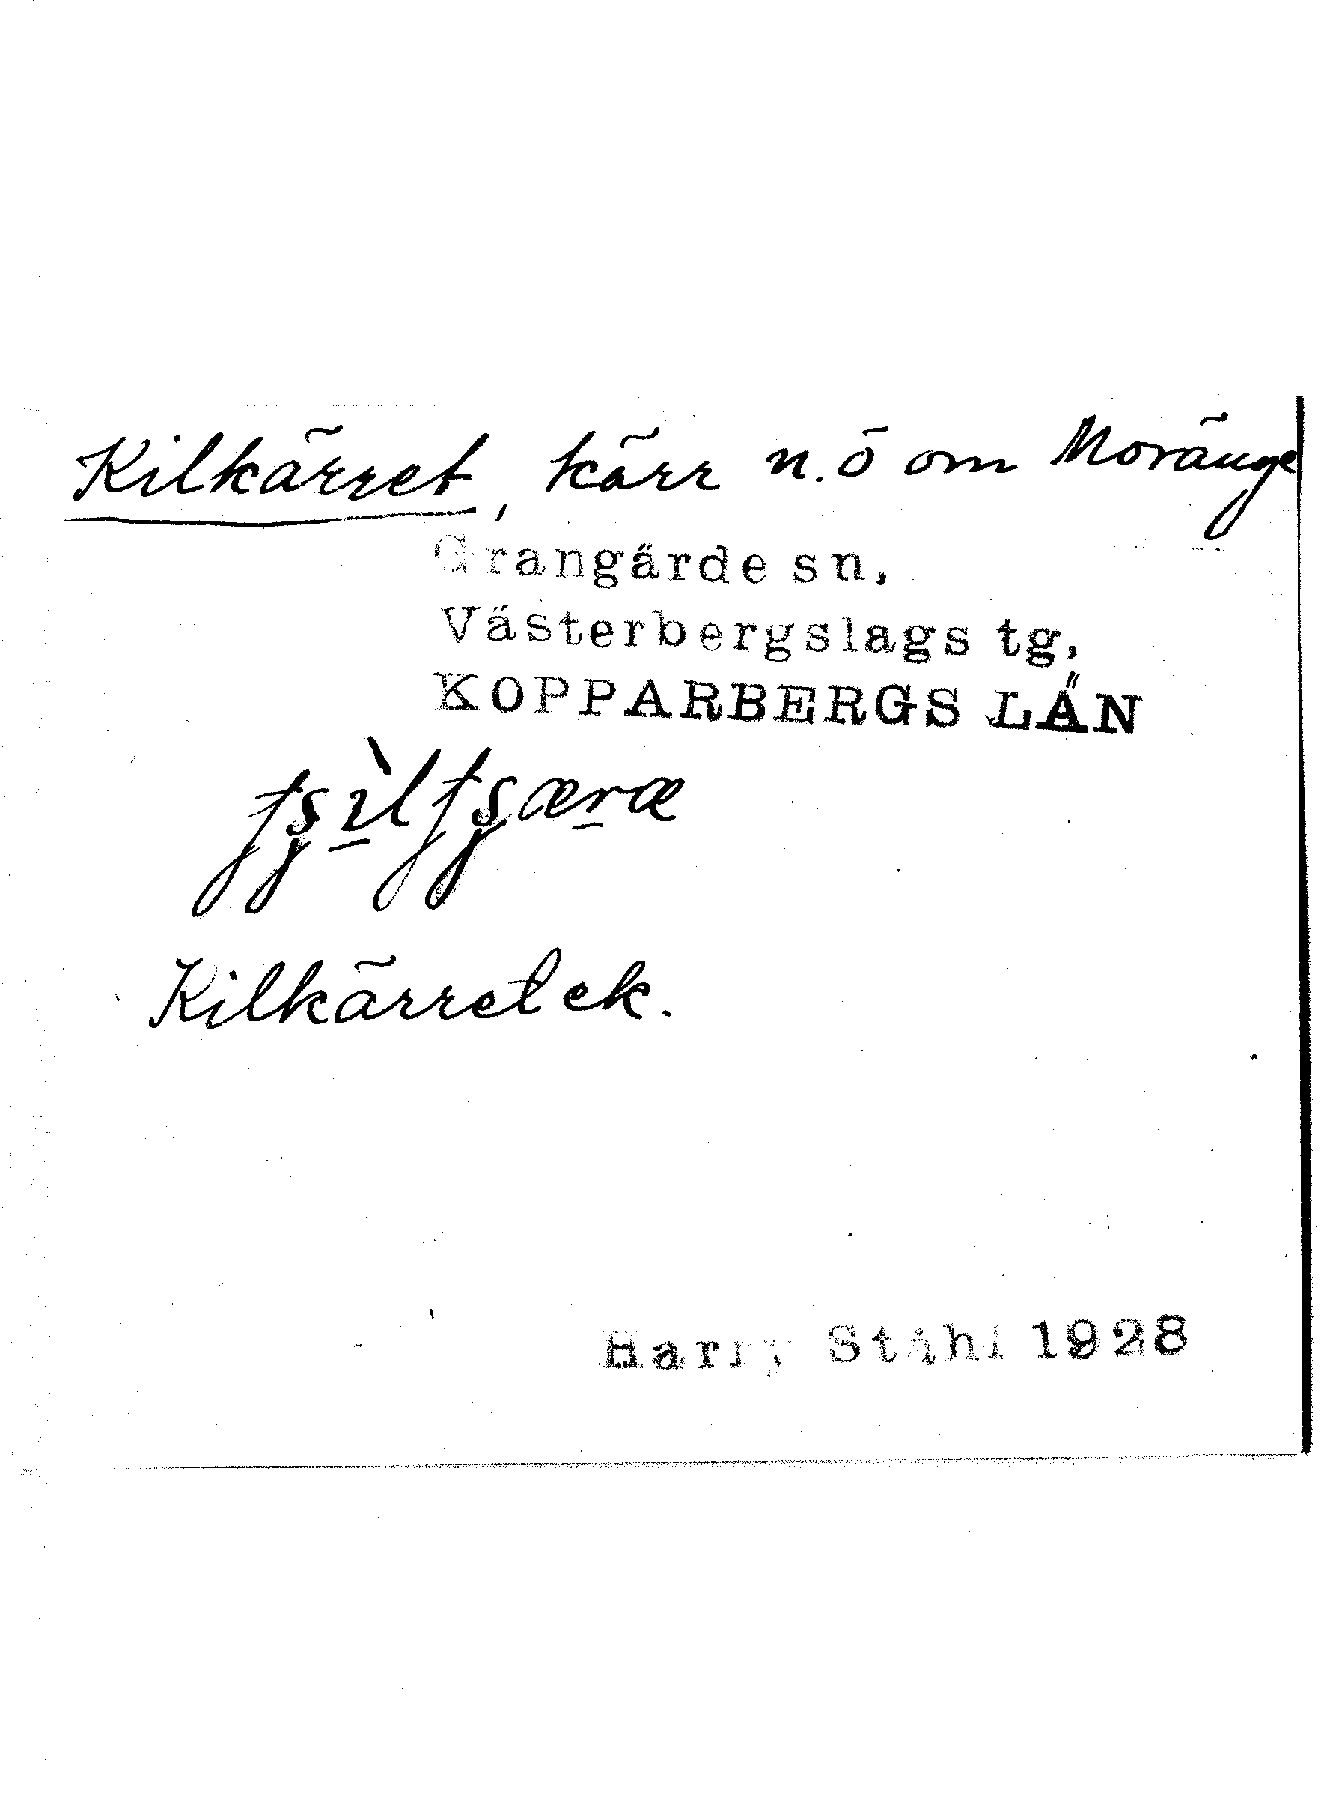 Kilkärret, kärr n.ö om Moränge
Grangärde sn.
Västerbergslags tg.
KOPPARBERGS LÄN
Kilkärret ek.
Harry Ståhl 1928